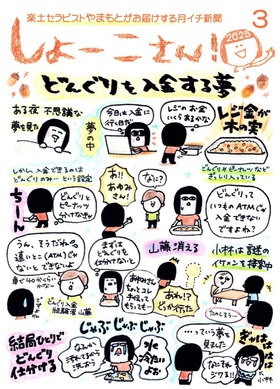 楽土セラピストやまもとがお届けする月イチ新聞
しょーこさん!
2025
3
どんぐりを入金する夢
ある夜
不思議な
夢を見た
夢の中
今日は入金に
行く日だ
レジのお金
いくらあるかな
レジ金が
木の実
どんぐりやピーナッツなど
ぎっしり入っている
しかし入金できるのは
どんぐりのみ…という設定
ちーん
どんぐりと
ピーナッツ
分けなきゃ
あ!
あゆみ
さん!
なに?
どんぐりって
いつものATMじゃ
入金できない
ですよね?
うん、そうだね
遠いとこのATMじゃ
ないとできないよ
まずは
どんぐりを
仕分けないと
どんぐり入金
経験者 山藤
山藤消える
あれ!?
どこ行った
小林は話題の
イケメンを検索中
結局ひとりで
どんぐり
仕分する
じゃぶじゃぶじゃぶ
水
冷たい
よお
…っていう夢を
見ました
なにそれ